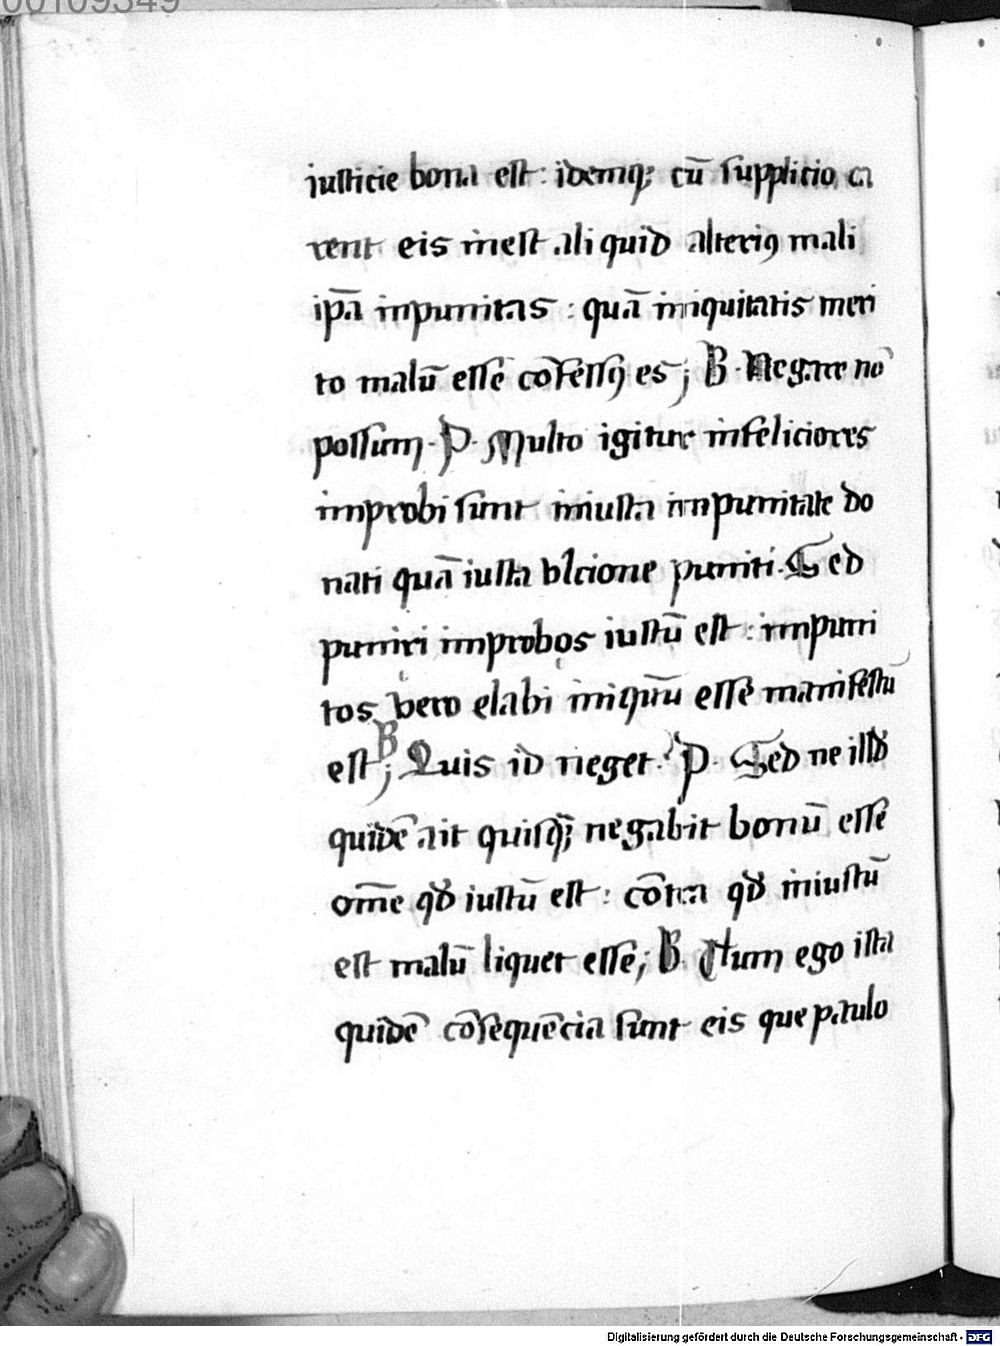 00109349
iusticie bona est : idemq; cū supplicio ca
rent eis inest aliquid alteriꝰ mali
ipā inpunitas : quā iniquitatis meri
to malū esse cōfessꝰ es ; B. Negare nō
possum . P. Multo igitur infeliciores
improbi sunt iniusta inpunitate do
nati quā iusta vlcione puniti . Sed
puniri improbos iustū est : impuni
tos vero elabi iniquū esse manifestū
est ; B Quis id neget ? P. Sed ne illud
quidē ait quisq; negabit bonū esse
om̄e qd iustū est : cōtra qd iniustū
est malū liquet esse ; B. Tum ego ista
quidē cōsequēcia sunt eis que paulo
Digitalisierung gefördert durch die Deutsche Forschungsgemeinschaft - DFG